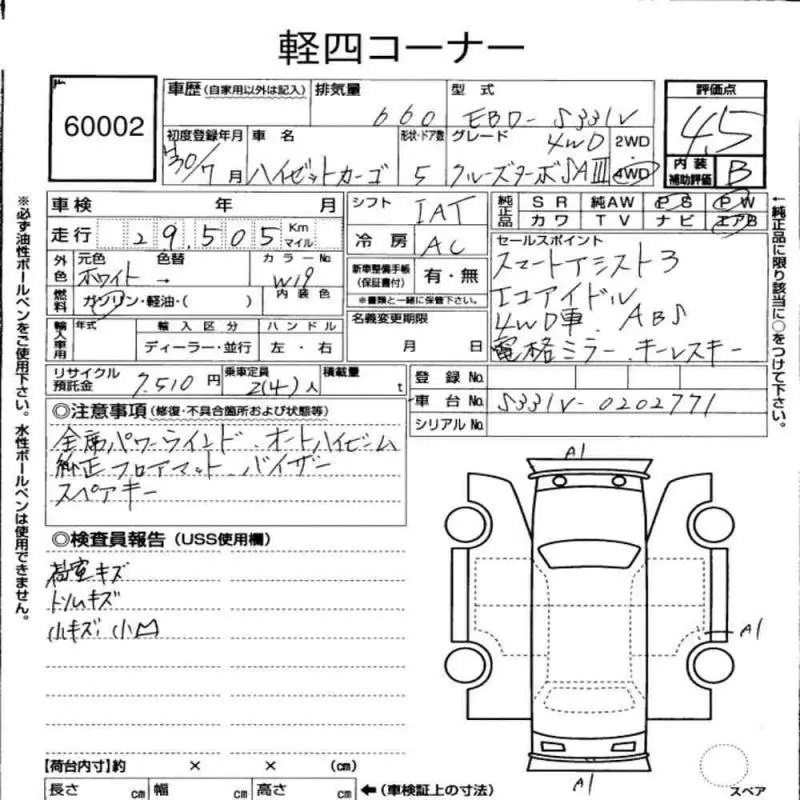 軽四コーナー
60002
車歴 (自家用以外は記入) 排気量 型式 評価点
660 EBD-S331V 4.5
初度登録年月 車名 形状・ドア数 グレード 4WD 2WD
H30/7月 ハイゼットカーゴ 5 クルーズターボSAIII 4WD
内装補助評価 B
車検 年 月
シフト IAT
純正品 SR 純AW PS PW
カワ TV ナビ エアB
走行 29,505 Km マイル
冷房 AC
セールスポイント
スマートアシスト3
エコアイドル
4WD車. ABS
電格ミラー.キーレスキー
外色 元色 色替 カラーNo
ホワイト → W19
新車整備手帳(保証書付) 有・無
※書類と一緒に保管下さい。
燃料 ガソリン・軽油・( ) 内装色
輸入車用 年式 輸入区分 ハンドル
ディーラー・並行 左・右
名義変更期限
月 日
リサイクル預託金 7,510円 乗車定員 2(4)人 積載量 t
登録No.
車台No. S331V-0202771
シリアルNo.
◎注意事項 (修復・不具合箇所および状態等)
全席パワーウインド.オートハイビーム
純正フロアマット.バイザー
スペアキー
◎検査員報告 (USS使用欄)
荷室キズ
トリムキズ
小キズ.小凹
A1
A1
A1
スペア
【荷台内寸】約 × × (cm)
長さ cm 幅 cm 高さ cm ← (車検証上の寸法)
※必ず油性ボールペンをご使用下さい。水性ボールペンは使用できません。
←純正品に限り該当に○をつけて下さい。